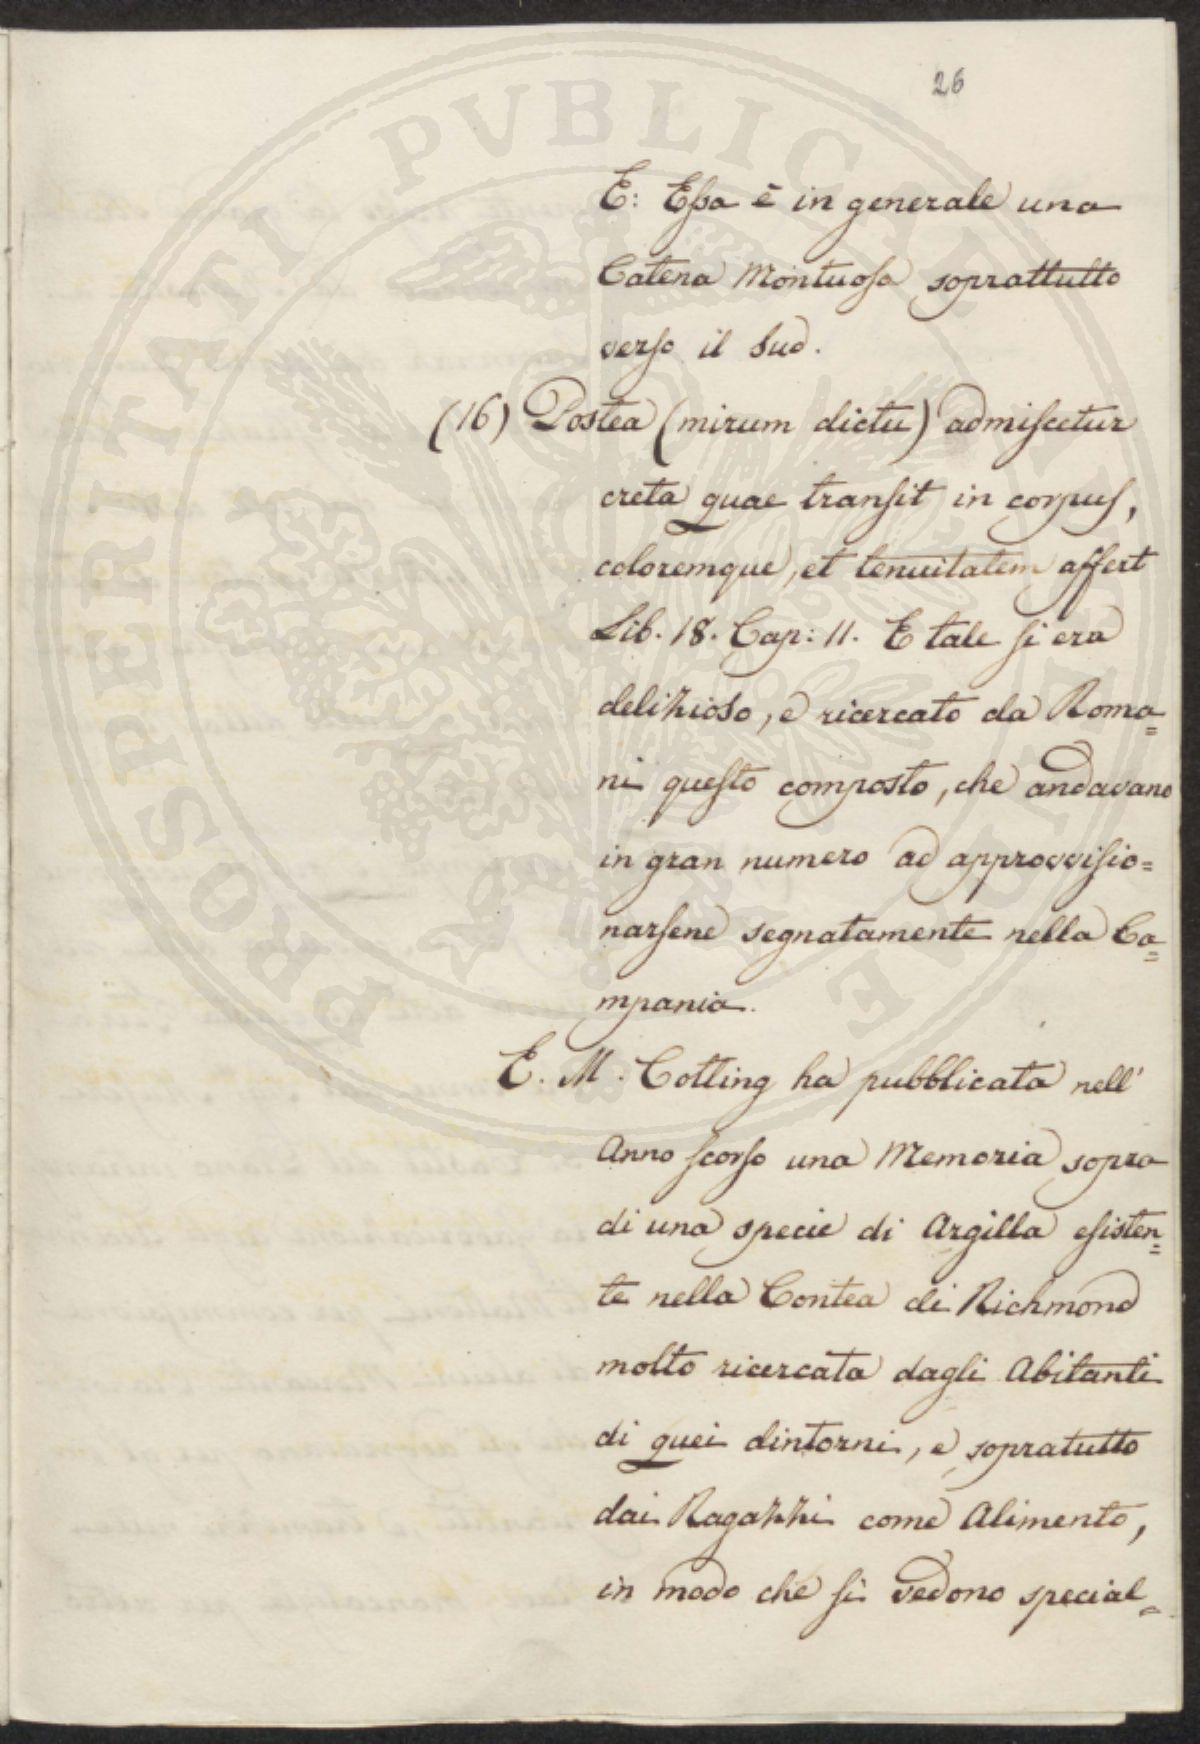 26
E: Essa è in generale una
Catena Montuosa soprattutto
verso il Sud.
(16) Postea (mirum dictu) admiscetur
creta quae transit in corpus,
coloremque, et tenuitatem affert
Lib. 18. Cap: 11. E tale si era
delizioso, e ricercato da Roma=
ni questo composto, che andavano
in gran numero ad approvvisio=
narsene segnatamente nella Ca=
mpania.
E. M. Cotting ha pubblicata nell'
Anno scorso una Memoria sopra
di una specie di Argilla esisten=
te nella Contea di Richmond
molto ricercata dagli Abitanti
di quei dintorni, e sopratutto
dai Ragazzi come Alimento,
in modo che si vedono special=
PROSPERITATI PUBLICAE